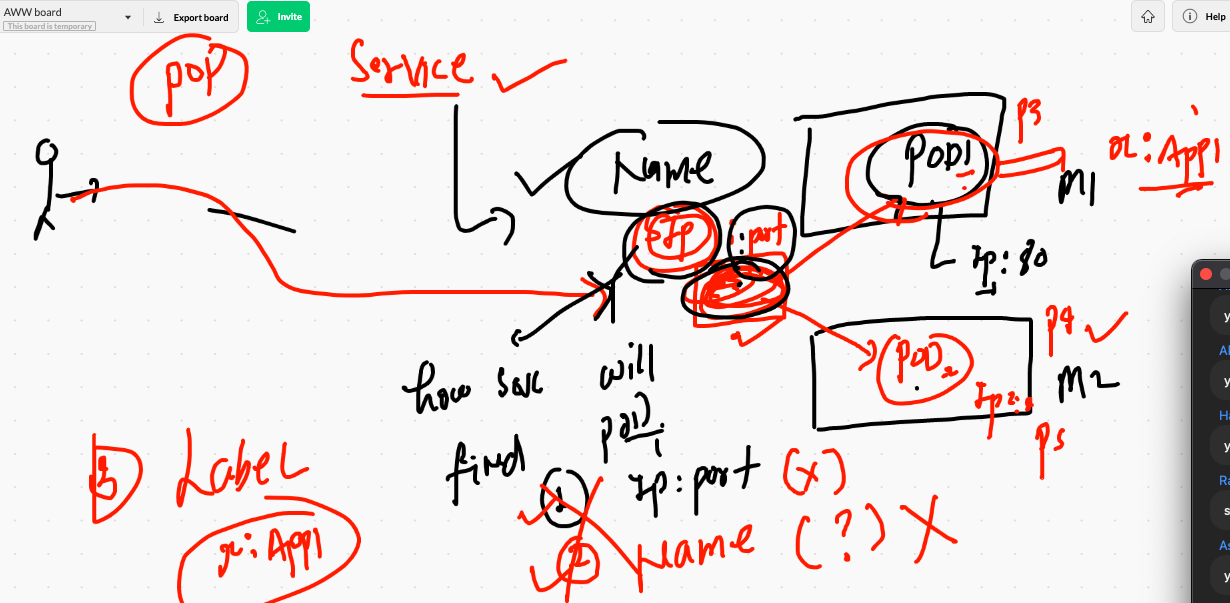 AWW board
This board is temporary
Export board
Invite
Help
POP
Service
Name
SIP
:port
POD1
P3
x:App1
M1
Ip:80
POD2
P4
M2
P5
how svc will
find POD1
1 Ip:port (x)
2 Name (?) X
3 Label
x:App1